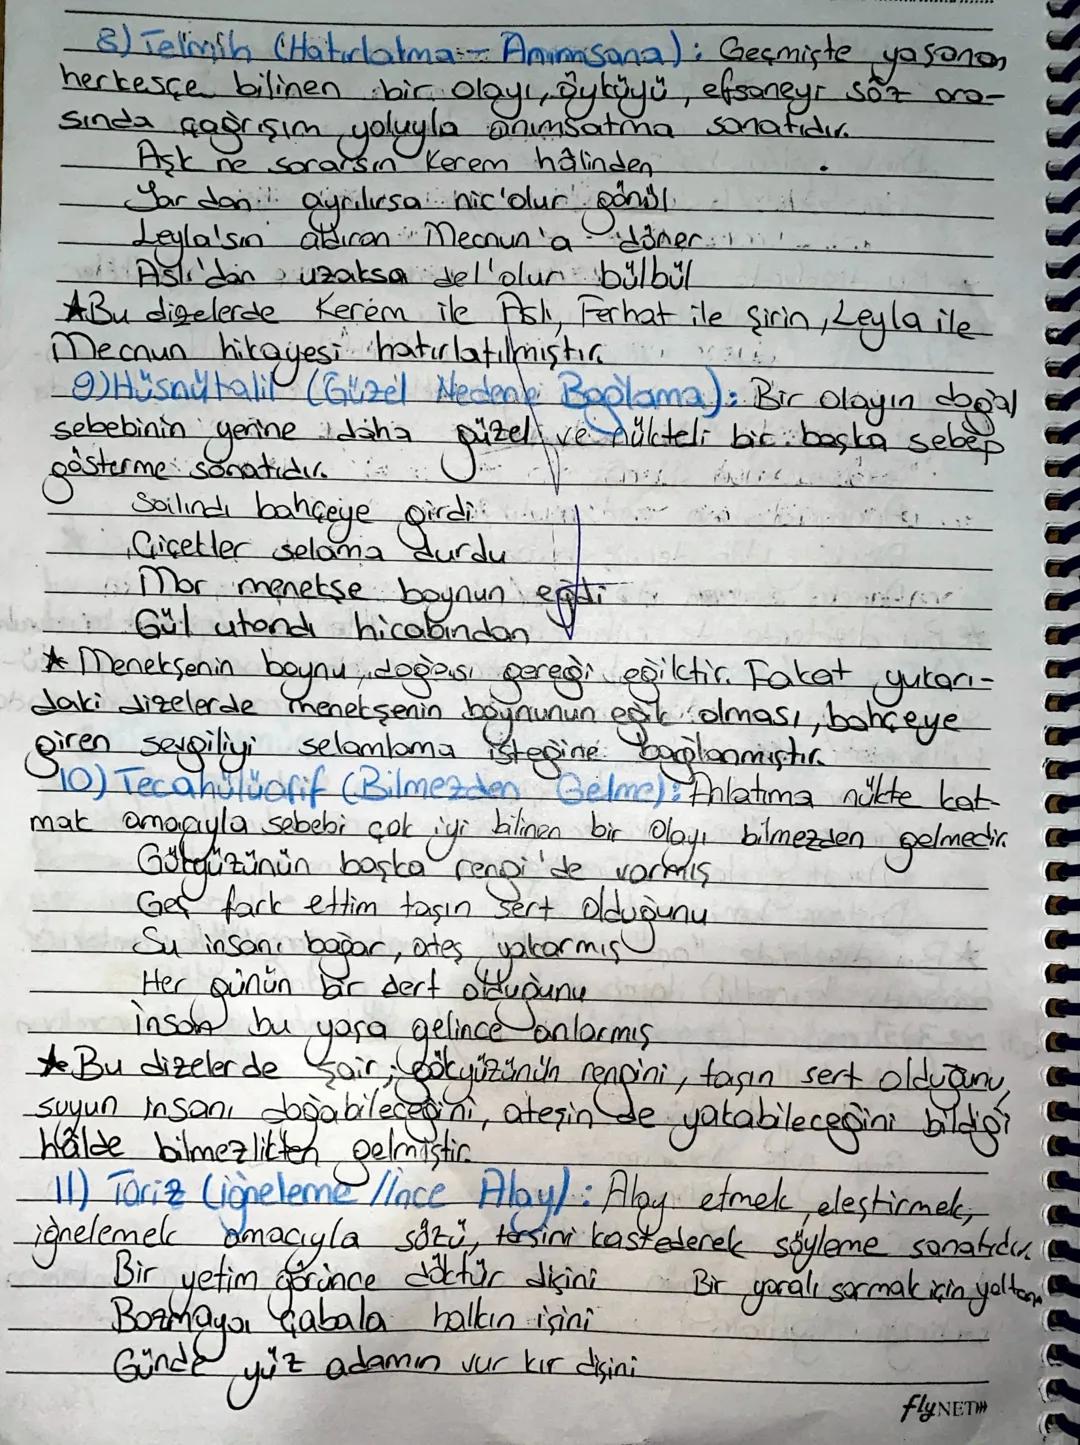 8) Telmih (Hatırlatma - Anımsama): Geçmişte yaşanan,
herkesçe bilinen bir olayı, öyküyü, efsaneyi söz ara-
sında çağrışım yoluyla anımsatma sanatıdır.
Aşk ne sorarsın Kerem hâlinden
Yardan ayrılırsa nic'olur gönül
Leyla'sın aldıran Mecnun'a döner
Aslı'dan uzaksa del'olur bülbül
★Bu dizelerde Kerem ile Aslı, Ferhat ile Şirin, Leyla ile
Mecnun hikayesi hatırlatılmıştır.
9) Hüsnütalil (Güzel Nedene Bağlama): Bir olayın doğal
sebebinin yerine daha güzel ve nükteli bir başka sebep
gösterme sanatıdır.
Salındı bahçeye girdi
Çiçekler selama durdu
Mor menekşe boynun eğdi
Gül utandı hicabından
★ Menekşenin boynu, doğası gereği eğiktir. Fakat yukarı-
daki dizelerde menekşenin boynunun eğik olması, bahçeye
giren sevgiliyi selamlama isteğine bağlanmıştır.
10) Tecahülüarif (Bilmezden Gelme): Anlatıma nükte kat-
mak amacıyla sebebi çok iyi bilinen bir olayı bilmezden gelmedir.
Gökyüzünün başka rengi'de varmış
Geç fark ettim taşın sert olduğunu
Su insanı boğar, ateş yakarmış
Her günün bir dert olduğunu
İnsan bu yaşa gelince anlarmış
★Bu dizelerde şair; gökyüzünün rengini, taşın sert olduğunu,
suyun insanı boğabileceğini, ateşin de yakabileceğini bildiği
hâlde bilmezlikten gelmiştir.
11) Tariz (iğneleme / İnce Alay): Alay etmek, eleştirmek,
iğnelemek amacıyla sözü, tersini kastederek söyleme sanatıdır.
Bir yetim görünce döktür dişini Bir yaralı sarmak için yeltenme
Bozmaya çabala halkın işini
Günde yüz adamın vur kır dişini
flyNET